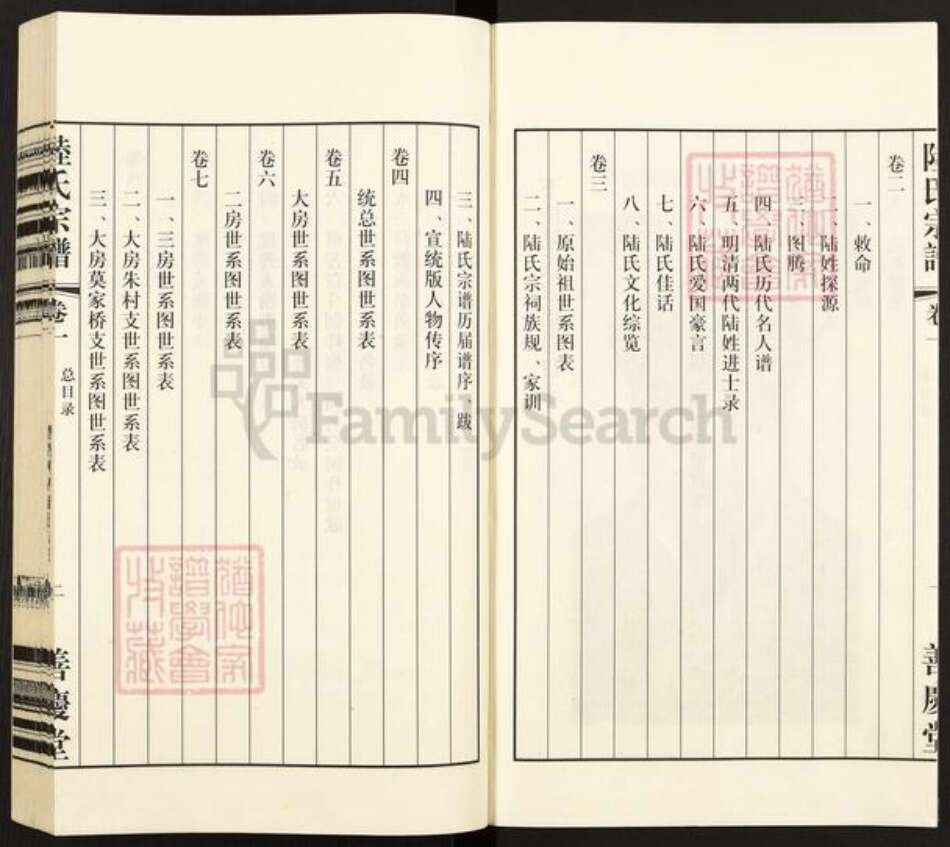 卷二
一、敕命
二、陆姓探源
三、图腾
四、陆氏历代名人谱
五、明清两代陆姓进士录
六、陆氏爱国豪言
七、陆氏佳话
八、陆氏文化综览
卷三
一、原始祖世系图表
二、陆氏宗祠族规、家训
三、陆氏宗谱历届谱序、跋
四、宣统版人物传序
卷四
统总世系图世系表
卷五
大房世系图世系表
卷六
二房世系图世系表
卷七
一、三房世系图世系表
二、大房朱村支世系图世系表
三、大房莫家桥支世系图世系表
陸氏宗譜
卷一
总目录
二
善慶堂
猶他家譜學會收藏
FamilySearch